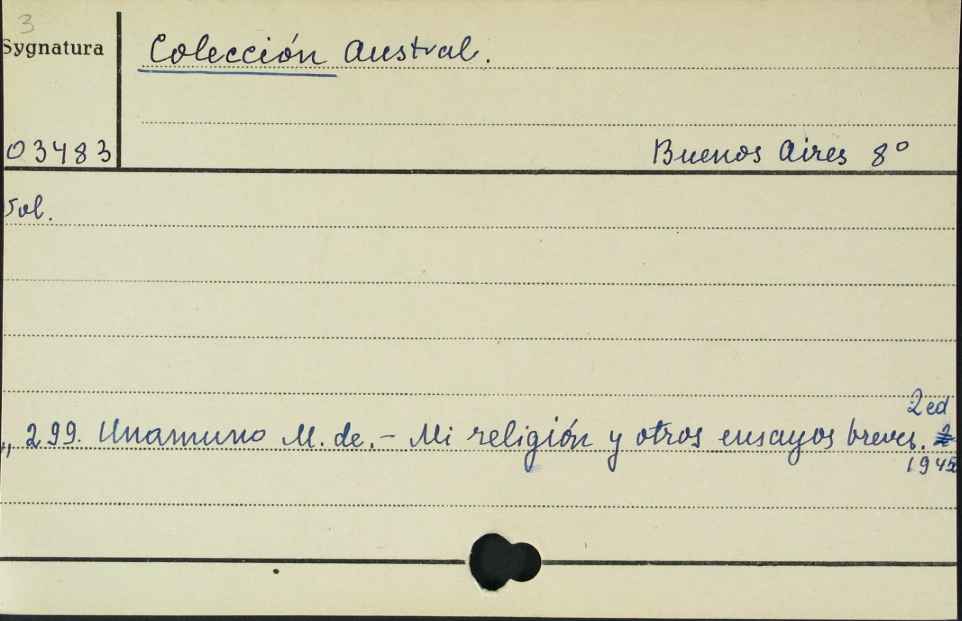 3
Sygnatura
Colección Austral.
03483
Buenos Aires 8°
Vol.
2 ed
„ 299. Unamuno M. de. - Mi religión y otros ensayos breves.
1945